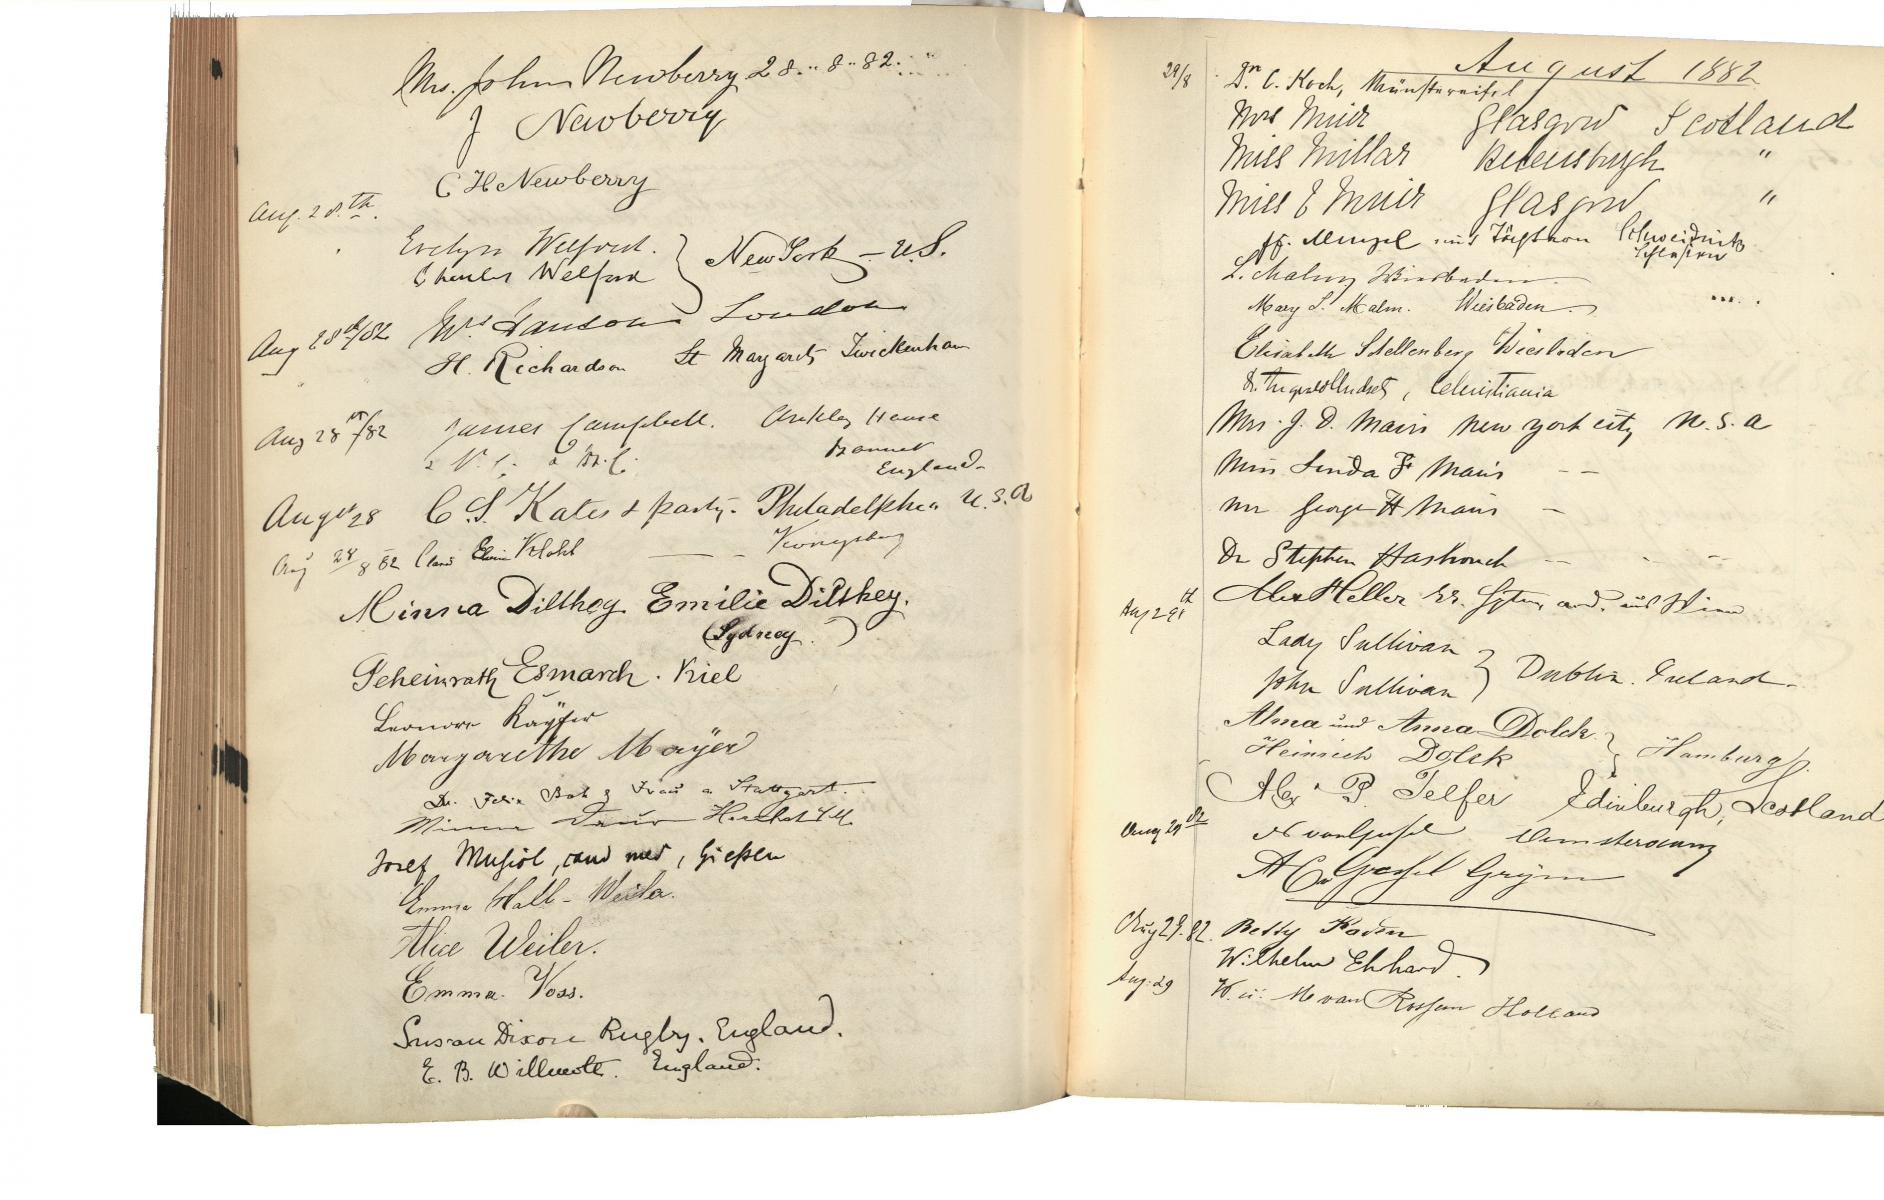 Mrs. John Newberry 28..8..82.
J Newberry
C H Newberry
Aug. 28.th.
Evelyn Welford.
Charles Welford } New York - U.S.
Mrs London
Aug 28th/82
H. Richardson St Margarets Twickenham
Aug 28th/82 James Campbell. Arkley House
Barnet
England-
Augst 28 C. S. Kates & party- Philadelphia U.S.A
Aug 28/8 82 Clara
Minna Dilthey Emilie Dilthey.
(Sydney.)
Geheimrath Esmarch. Kiel
Leonore Käyser
Margarethe Mayer
Dr. Felix Frau a Stuttgart.
Minna
Josef Musiol, cand med, Gießen
Emma Hall-Weiler.
Alice Weiler.
Emma Voss.
Susan Dixon Rugby. England.
E. B. Willmott. England.
August 1882
29/8 Dr. C. Koch, Münstereifel
Mrs Muir Glasgow Scotland
Miss Millar Helensburgh "
Miss E Muir Glasgow "
Menzel und Töchter Schweidnitz
Schlesien
L. Malm Wiesbaden.
Mary L. Malm. Wiesbaden.
Elisabeth Schellenberg Wiesbaden
Christiania
Mrs. J. D. Mairs New York City U.S.A
Miss Linda F Mairs - -
Mr George H Mairs -
Dr Stephen Hasbrouck - - -
Aug 29th Alex Heller
Lady Sullivan
John Sullivan } Dublin. Ireland-
Alma und Anna Dolck
Heinrich Dolck } Hamburg.
Alex. P. Telfer Edinburgh, Scotland
Aug 29 Amsterdam
Aug 29. 82. Betty Kaden
Wilhelm Ehrhard.
Aug. 29 W. u. M van Rossum Holland